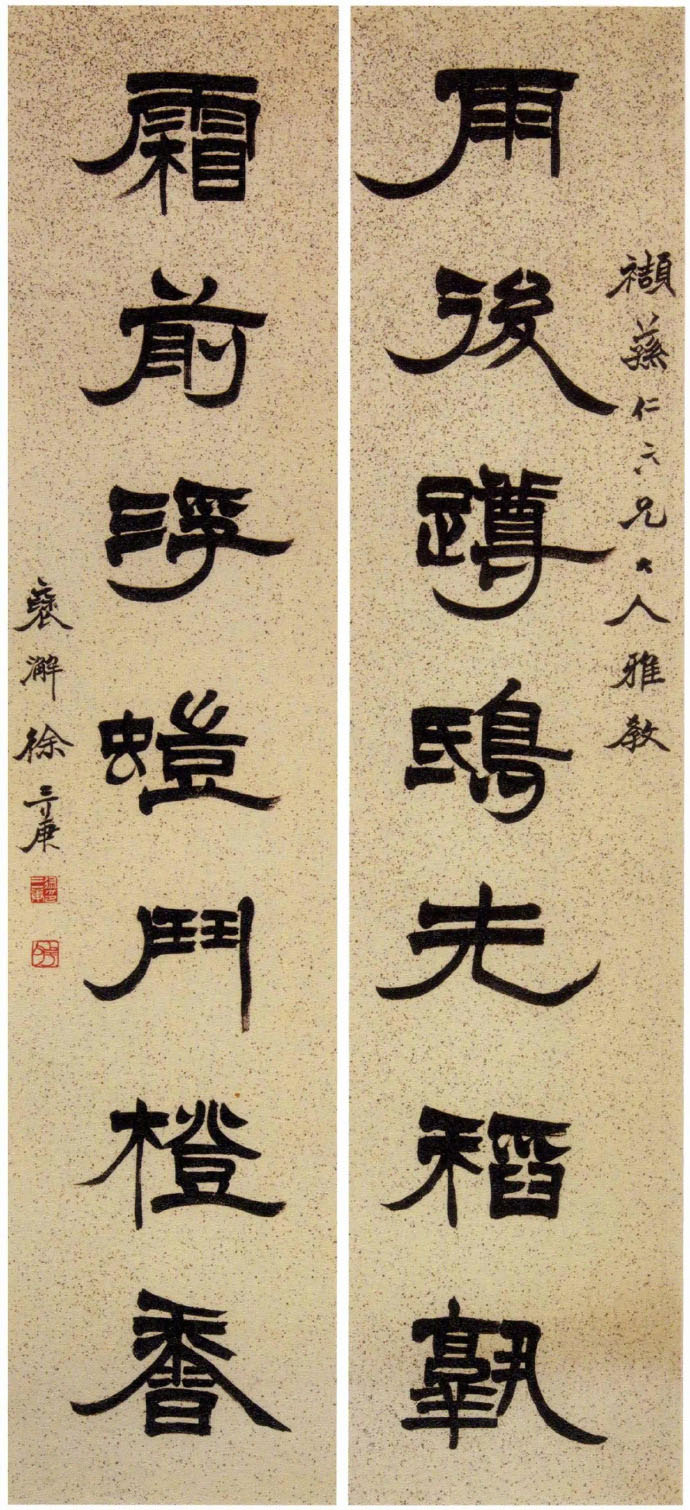 襭蓀仁六兄大人雅教
雨後蹲鴟先稻孰
霜前浮螘鬥橙香
褎澥徐三庚